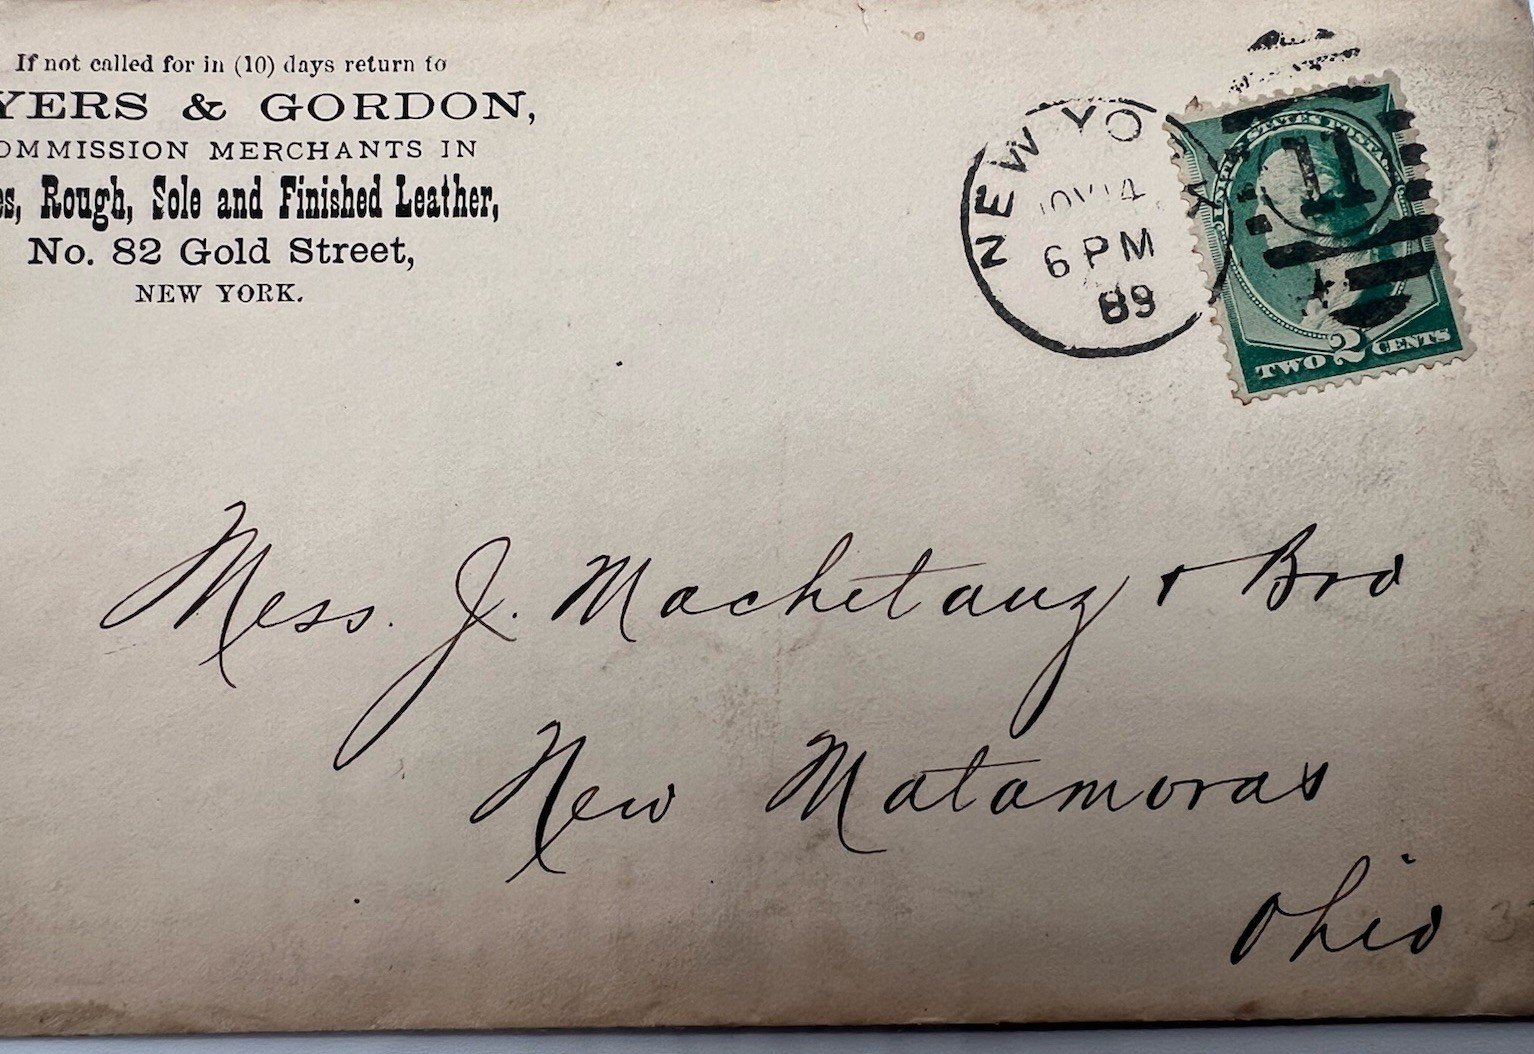 If not called for in (10) days return to
YERS & GORDON,
OMMISSION MERCHANTS IN
es, Rough, Sole and Finished Leather,
No. 82 Gold Street,
NEW YORK.
NEW YO
NOV 14
6 PM
89
11
UNITED STATES POSTAGE
TWO 2 CENTS
Mess. J. Machetauz & Bro
New Matamoras
Ohio